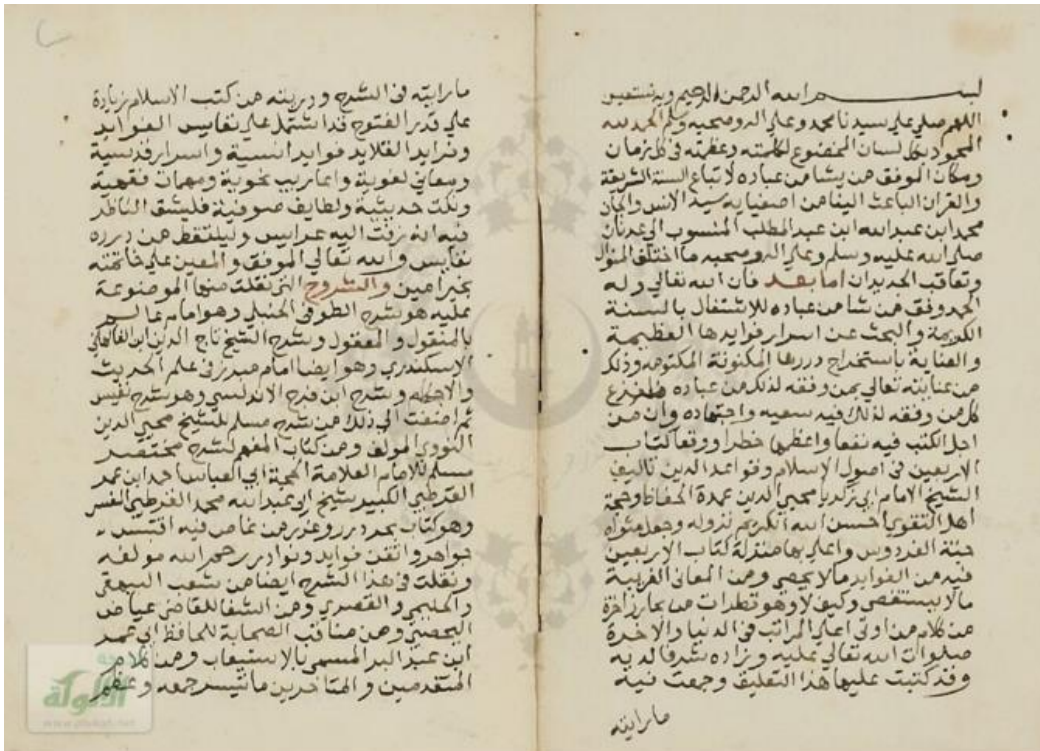 بسم الله الرحمن الرحيم وبه نستعين
اللهم صلي علي سيدنا محمد وعلي اله وصحبه وسلم الحمد لله
المحمود بكل لسان المخضوع لكلمته وعظمته في كل زمان
ومكان الموفق من يشا من عباده لاتباع السنة الشريفة
والقران الباعث الينا من اصفيايه سيد الانس والجان
محمد ابن عبد الله ابن عبد المطلب المنسوب الي عدنان
صلي الله عليه وسلم وعلي اله وصحبه ما اختلف
وتعاقب الجديدان اما بعد فان الله تعالي وله
الحمد وفق من شا من عباده للاشتغال بالسنة
الكريمة والبحث عن اسرار فوايدها العظيمة
والعناية باستخراج دررها المكنونة المكتومه وذلك
من عنايته تعالي بمن وفقه لذلك من عباده
كل من وفقه لذلك فيه سعيه واجتهاده وان من
اجل الكتب فيه نفعا واعظمها خطرا ووقعا كتاب
الاربعين في اصول الاسلام وقواعد الدين تاليف
الشيخ الامام ابي زكريا محيي الدين عمدة الحفاظ وحجة
اهل التقوي احسن الله الكريم نزوله وجعل مثواه
جنة الفردوس واعلي بها منزلة كتاب الاربعين
فيه من الفوايد ما لا يحصي ومن المعاني الغريبة
ما لا يستقصي وكيف لا وهو قطرات من بحار زاخرة
من كلام من اوتي اعلي المراتب في الدنيا والاخرة
صلوات الله تعالي عليه وزاده شرفا لديه
وقد كتبت عليها هذا التعليق وجمعت فيه
ما رايته
ما رايته في الشرح و من كتب الاسلام زيادة
علي قدر الفتوح قد اشتمل علي نفايس الفوايد
وفرايد القلايد فوايد انسية واسرار قدسية
ومعاني لغوية واعاريب نحوية ومهمات فقهية
ونكت حديثية ولطايف صوفية فليشق الناقد
فيه انه زفت اليه عرايس وليلتقط من درره
نفايس والله تعالي الموفق والمعين علي خاتمته
بخير امين والشروح التي نقلت منها الموضوعة
عليه هو شرح الطوفي الحنبلي وهو امام عالم
بالمنقول والمعقول وشرح الشيخ تاج الدين ابن الفاكهاني
الاسكندري وهو ايضا امام مبرز في علم الحديث
وشرح ابن فرح الاندلسي وهو شرح نفيس
ثم اضفت الي ذلك من شرح مسلم للشيخ محيي الدين
النووي المولف ومن كتاب المفهم لشرح مختصر
مسلم للامام العلامة الحجة ابي العباس احمد ابن عمر
القرطبي الكبير شيخ ابي عبد الله محمد القرطبي المفسر
وهو كتاب بحر درر وغرر من غاص فيه اقتبس
جواهر واتقن فوايد ونوادر رحم الله مولفه
ونقلت في هذا الشرح ايضا من شعب البيهقي
والحليمي والقصري ومن الشفا للقاضي عياض
اليحصبي ومن مناقب الصحابة للحافظ ابي عمر
ابن عبد البر المسمي بالاستيعاب ومن كلام
المتقدمين والمتاخرين ما تيسر جمعه وعظم
الألوكة
www.alukah.net